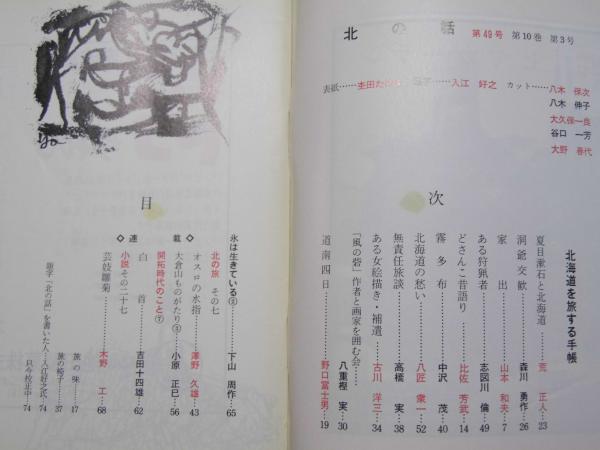 北の話 第49号 第10巻 第3号
表紙……杢田た 入江 好之 カット……八木 保次
八木 伸子
大久保一良
谷口 一芳
大野 春代
目
次
北海道を旅する手帳
夏目漱石と北海道……荒 正人…23
洞爺交歓……森川 勇作…26
家出……山本 和夫…7
ある狩猟者……志図川 倫…49
どさんこ昔語り……比佐 芳武…14
霧多布……中沢 茂…40
北海道の愁い……八匠 衆一…52
無責任旅談……高橋 実…38
ある女絵描き・補遺……古川 洋三…34
「風の砦」作者と画家を囲む会……八重樫 実…30
道南四日……野口冨士男…19
氷は生きている②……下山 周作…65
◇連載◇
北の旅 その七
オスロの水指……澤野 久雄…43
大倉山ものがたり③……小原 正巳…56
開拓時代のこと⑦
白首……吉田十四雄…62
小説 その二十七
芸妓雛菊……木野 工…68
題字「北の話」を書いた人…入江好之氏…74
旅の味…17
旅の椅子…37
只今校正中…74